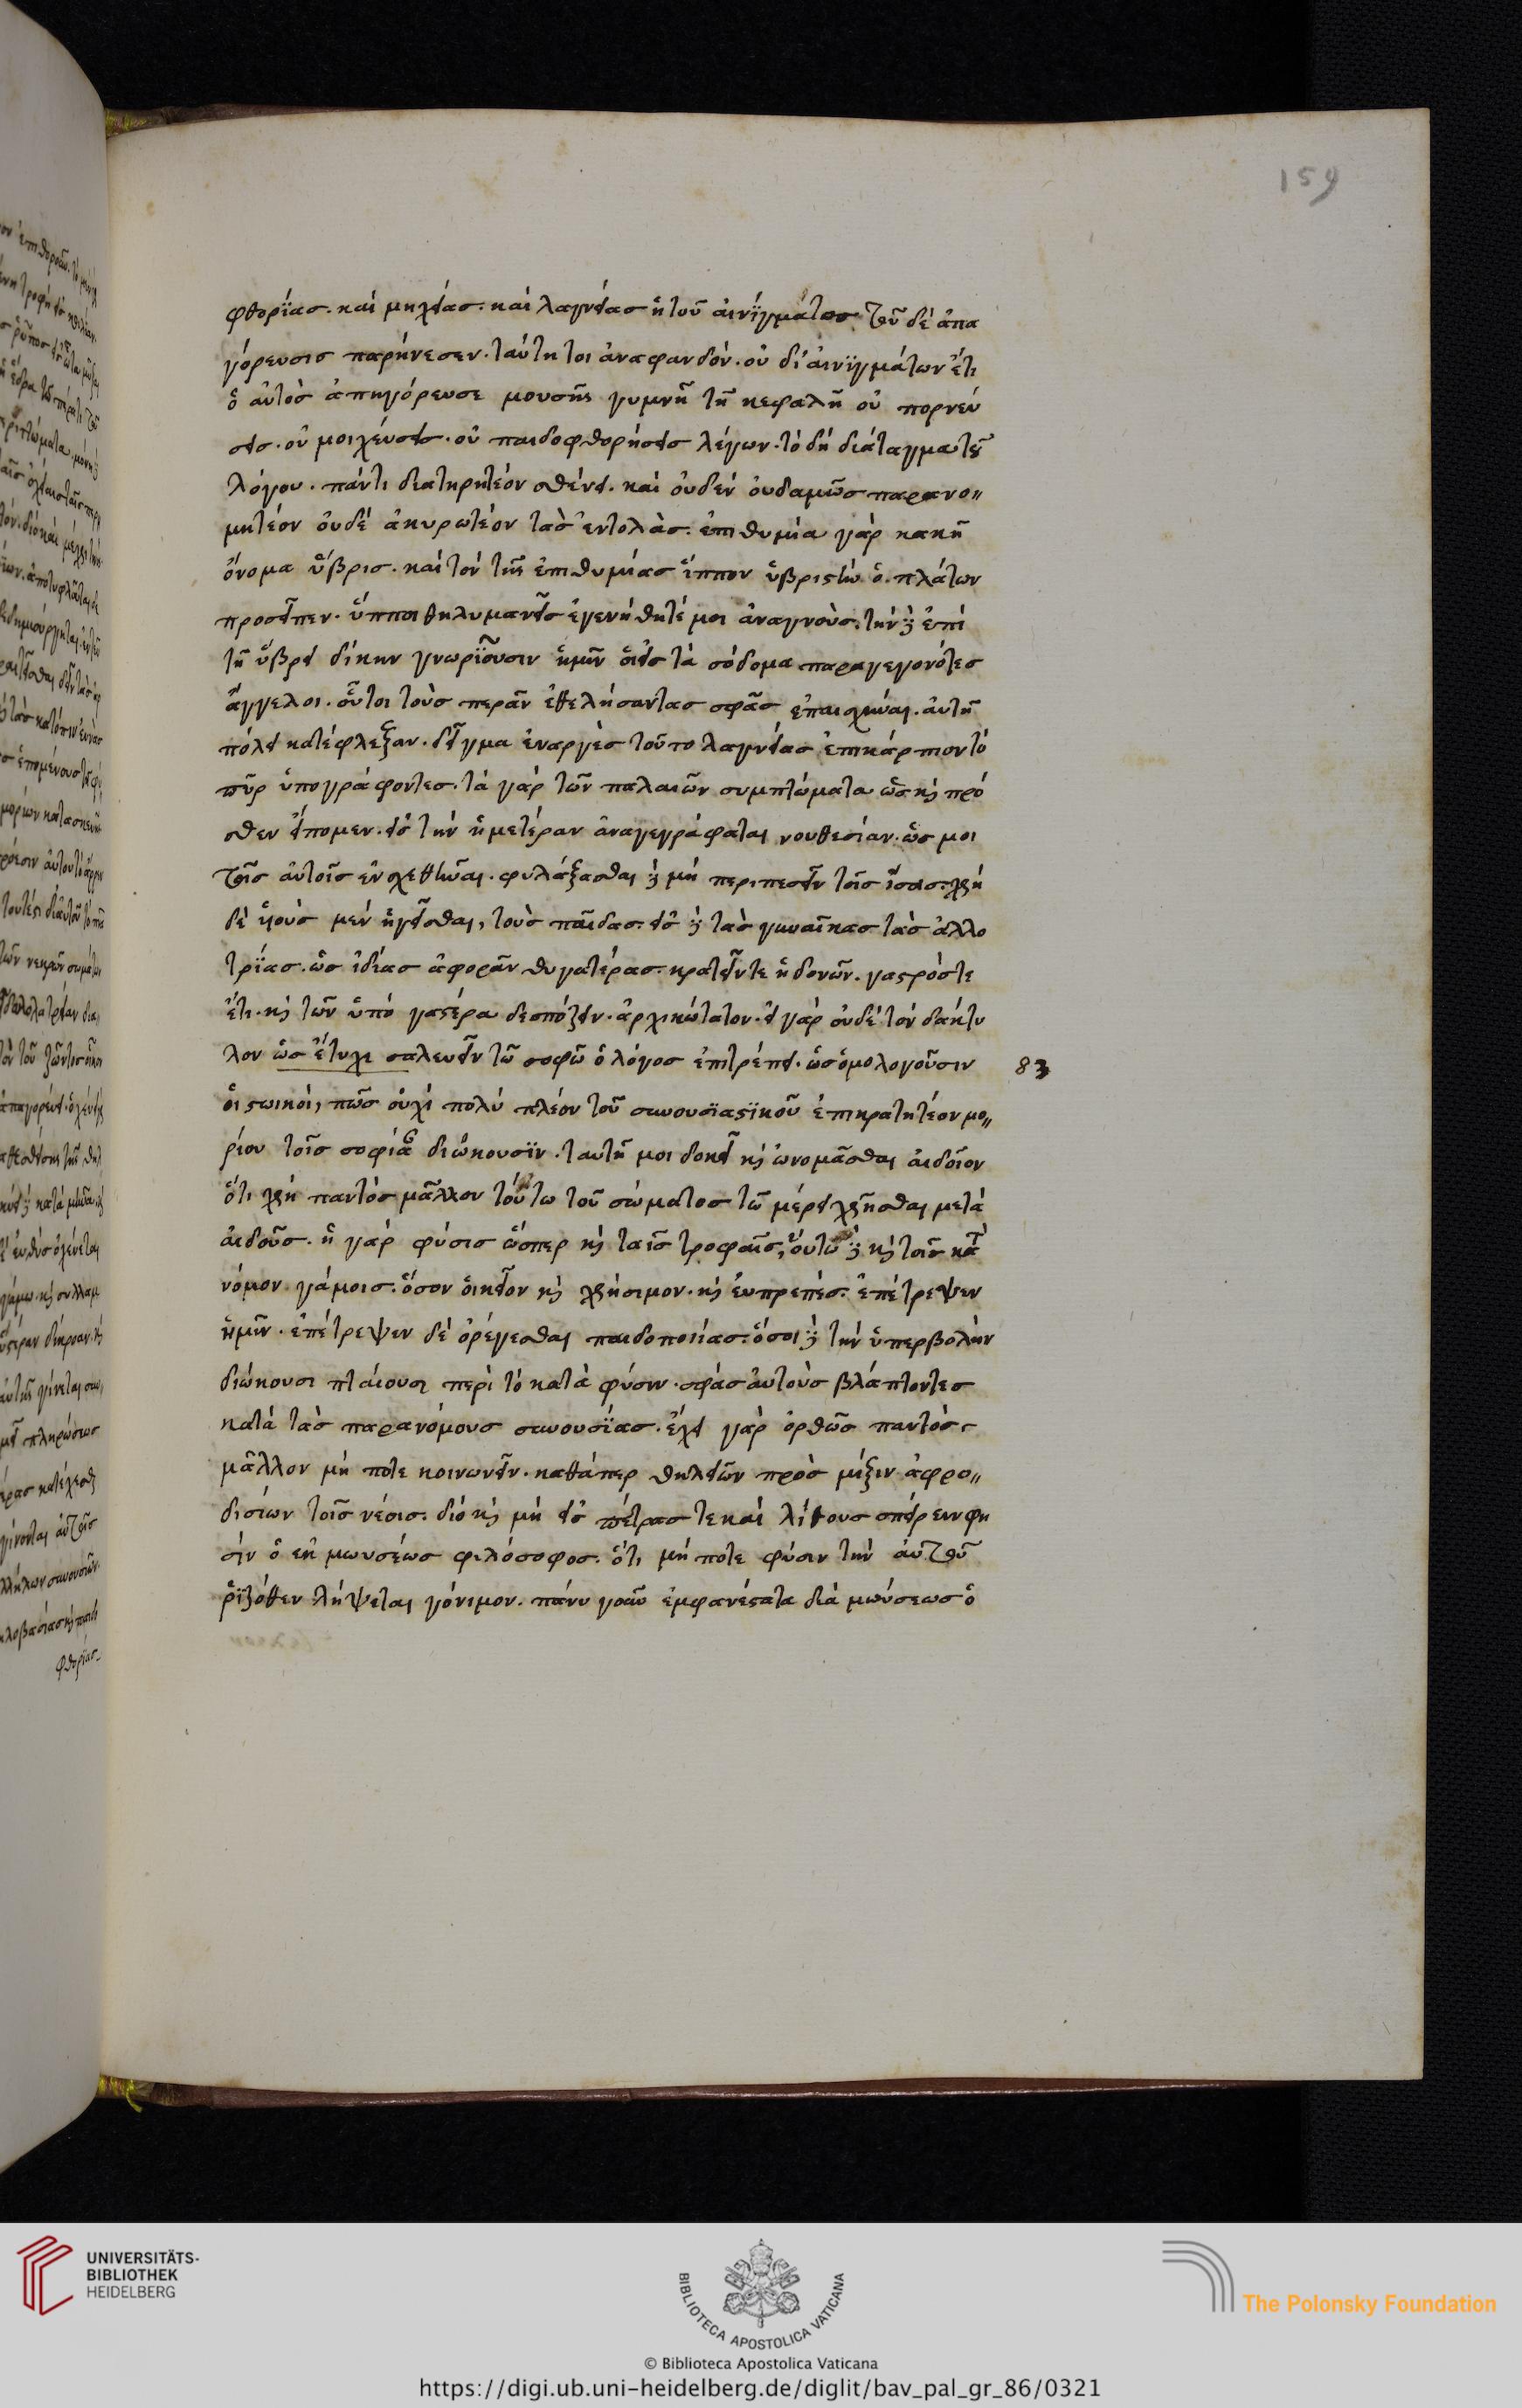 159
φθορίας. καὶ μηχείας. καὶ λαγνείας ἡ τοῦ αἰνίγματος τοῦδε ἀπα
γόρευσις παρήνεσεν. ταύτη τοι ἀναφανδὸν. οὐ δι' αἰνιγμάτων ἔτι
ὁ αὐτὸς ἀπηγόρευσε μουσῆς γυμνῆ τῆ κεφαλῆ οὐ πορνεύ
σεις. οὐ μοιχεύσεις. οὐ παιδοφθορήσεις λέγων. τὸ δὴ διάταγμα τοῦ
λόγου. πάντι διατηρητέον σθένει. καὶ οὐδὲν οὐδαμῶς παρανο〃
μητέον οὐδὲ ἀκυρωτέον τὰς ἐντολὰς. ἐπιθυμία γὰρ κακῆ
ὄνομα ὕβρις. καὶ τὸν τῆς ἐπιθυμίας ἵππον ὑβριστὴν ὁ πλάτων
προσεῖπεν. ἵπποι θηλυμανεῖς ἐγενήθητέ μοι ἀναγνοὺς. τὴν δὲ ἐπὶ
τῆ ὕβρει δίκην γνωριοῦσιν ἡμῖν οἱ εἰς τὰ σόδομα παραγεγονότες
ἄγγελοι. οὗτοι τοὺς περᾶν ἐθελήσαντας σφᾶς ἐπαισχῦναι. αὐτῆ
πόλει κατέφλεξαν. δεῖγμα ἐναργὲς τοῦτο λαγνείας ἐπικάρπιον τὸ
πῦρ ὑπογράφοντες. τὰ γὰρ τῶν παλαιῶν συμπτώματα ὡς καὶ πρό
σθεν εἴπομεν. εἰς τὴν ἡμετέραν ἀναγεγράφαται νουθεσίαν. ὥς μοι
τοῖς αὐτοῖς ἐνσχεθῶμαι. φυλάξασθαι δὲ μὴ περιπεσεῖν τοῖς ἴσοις. χρὴ
δὲ υἱοὺς μὲν ἡγεῖσθαι, τοὺς παῖδας. εἰς δὲ τὰς γυναῖκας τὰς ἀλλο
τρίας. ὡς ἰδίας ἀφορᾶν θυγατέρας. κρατεῖν τε ἡδονῶν. γαστρός τε
ἔτι. καὶ τῶν ὑπὸ γαστέρα δεσπόζειν. ἀρχικώτατον. εἰ γὰρ οὐδὲ τὸν δάκτυ
λον ὡς ἔτυχε σαλεύειν τῶ σοφῶ ὁ λόγος ἐπιτρέπει. ὡς ὁμολογοῦσιν 83
οἱ στωικοὶ, πῶς οὐχὶ πολὺ πλέον τοῦ συνουσιαστικοῦ ἐπικρατητέον μο〃
ρίου τοῖς σοφίαν διώκουσιν. ταυτῆ μοι δοκεῖ καὶ ὠνομᾶσθαι αἰδοῖον
ὅτι χρὴ παντὸς μᾶλλον τούτω τοῦ σώματος τῶ μέρει χρῆσθαι μετὰ
αἰδοῦς. ἡ γὰρ φύσις ὥσπερ καὶ ταῖς τροφαῖς, οὕτω δὲ καὶ τοῖς κατὰ
νόμον γάμοις. ὅσον οἰκεῖον καὶ χρήσιμον. καὶ εὐπρεπές. ἐπέτρεψεν
ἡμῖν. ἐπέτρεψεν δὲ ὀρέγεσθαι παιδοποιίας. ὅσοι δὲ τὴν ὑπερβολὴν
διώκουσι πταίουσι περὶ τὸ κατὰ φύσιν. σφάς αὐτοὺς βλάπτοντες
κατὰ τὰς παρανόμους συνουσίας. ἔχει γὰρ ὀρθῶς παντὸς
μᾶλλον μή ποτε κοινωνεῖν. καθάπερ θηλειῶν πρὸς μίξιν ἀφρο〃
δισίων τοῖς νέοις. διὸ καὶ μὴ εἰς πέτρας τε καὶ λίθους σπείρειν φη
σὶν ὁ ἐκ μωυσέως φιλόσοφος. ὅτι μή ποτε φύσιν τὴν αὐτοῦ
ῥιζόθεν λήψεται γόνιμον. πάνυ γοῦν ἐμφανέστατα διὰ μωύσεως ὁ
UNIVERSITÄTS-
BIBLIOTHEK
HEIDELBERG
BIBLIOTECA APOSTOLICA VATICANA
The Polonsky Foundation
© Biblioteca Apostolica Vaticana
https://digi.ub.uni-heidelberg.de/diglit/bav_pal_gr_86/0321